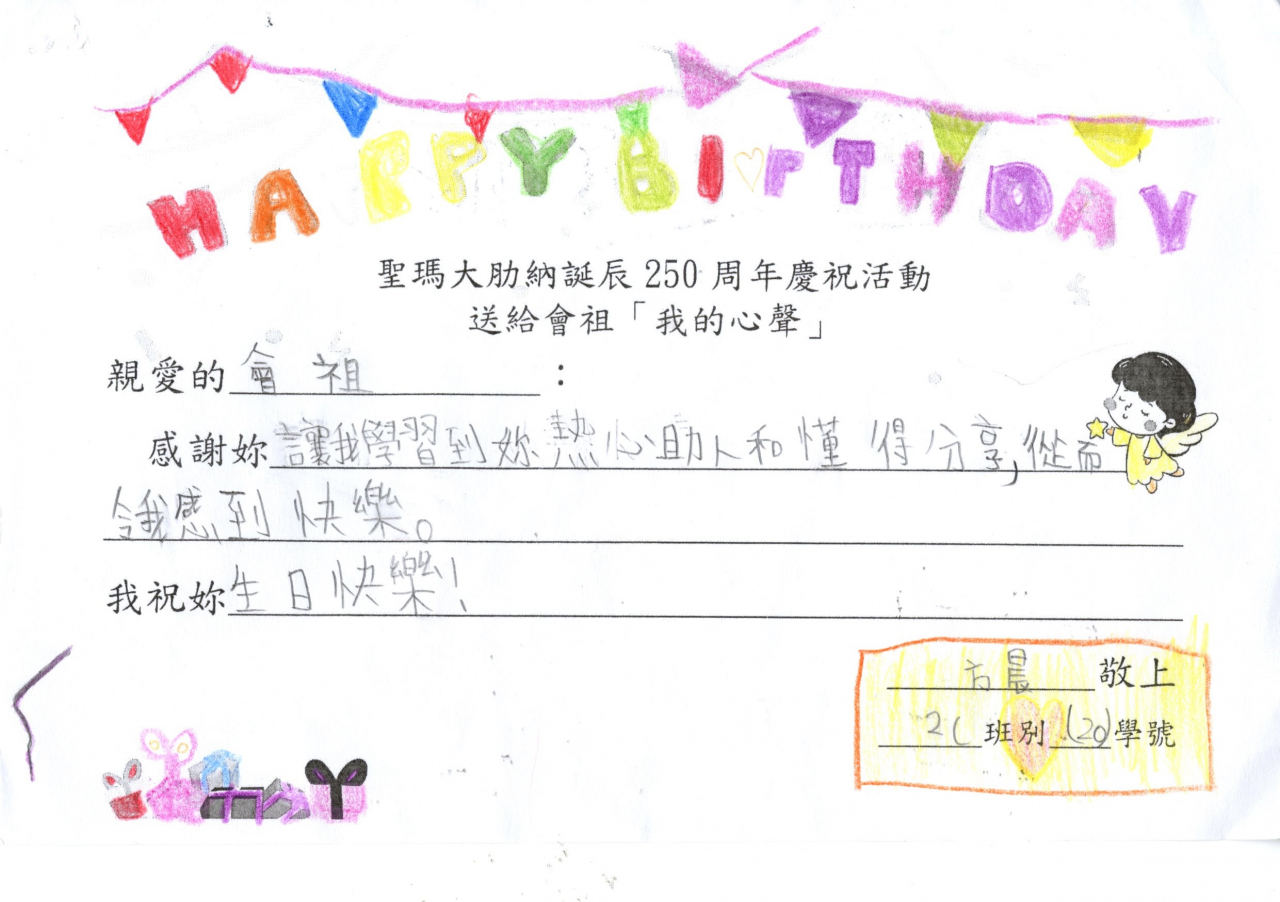 HAPPY BIRTHDAY
聖瑪大肋納誕辰 250 周年慶祝活動
送給會祖「我的心聲」
親愛的 會祖 ：
感謝妳讓我學習到妳熱心助人和懂得分享,從而
令我感到快樂。
我祝妳生日快樂!
方晨 敬上
2C 班別 (20) 學號